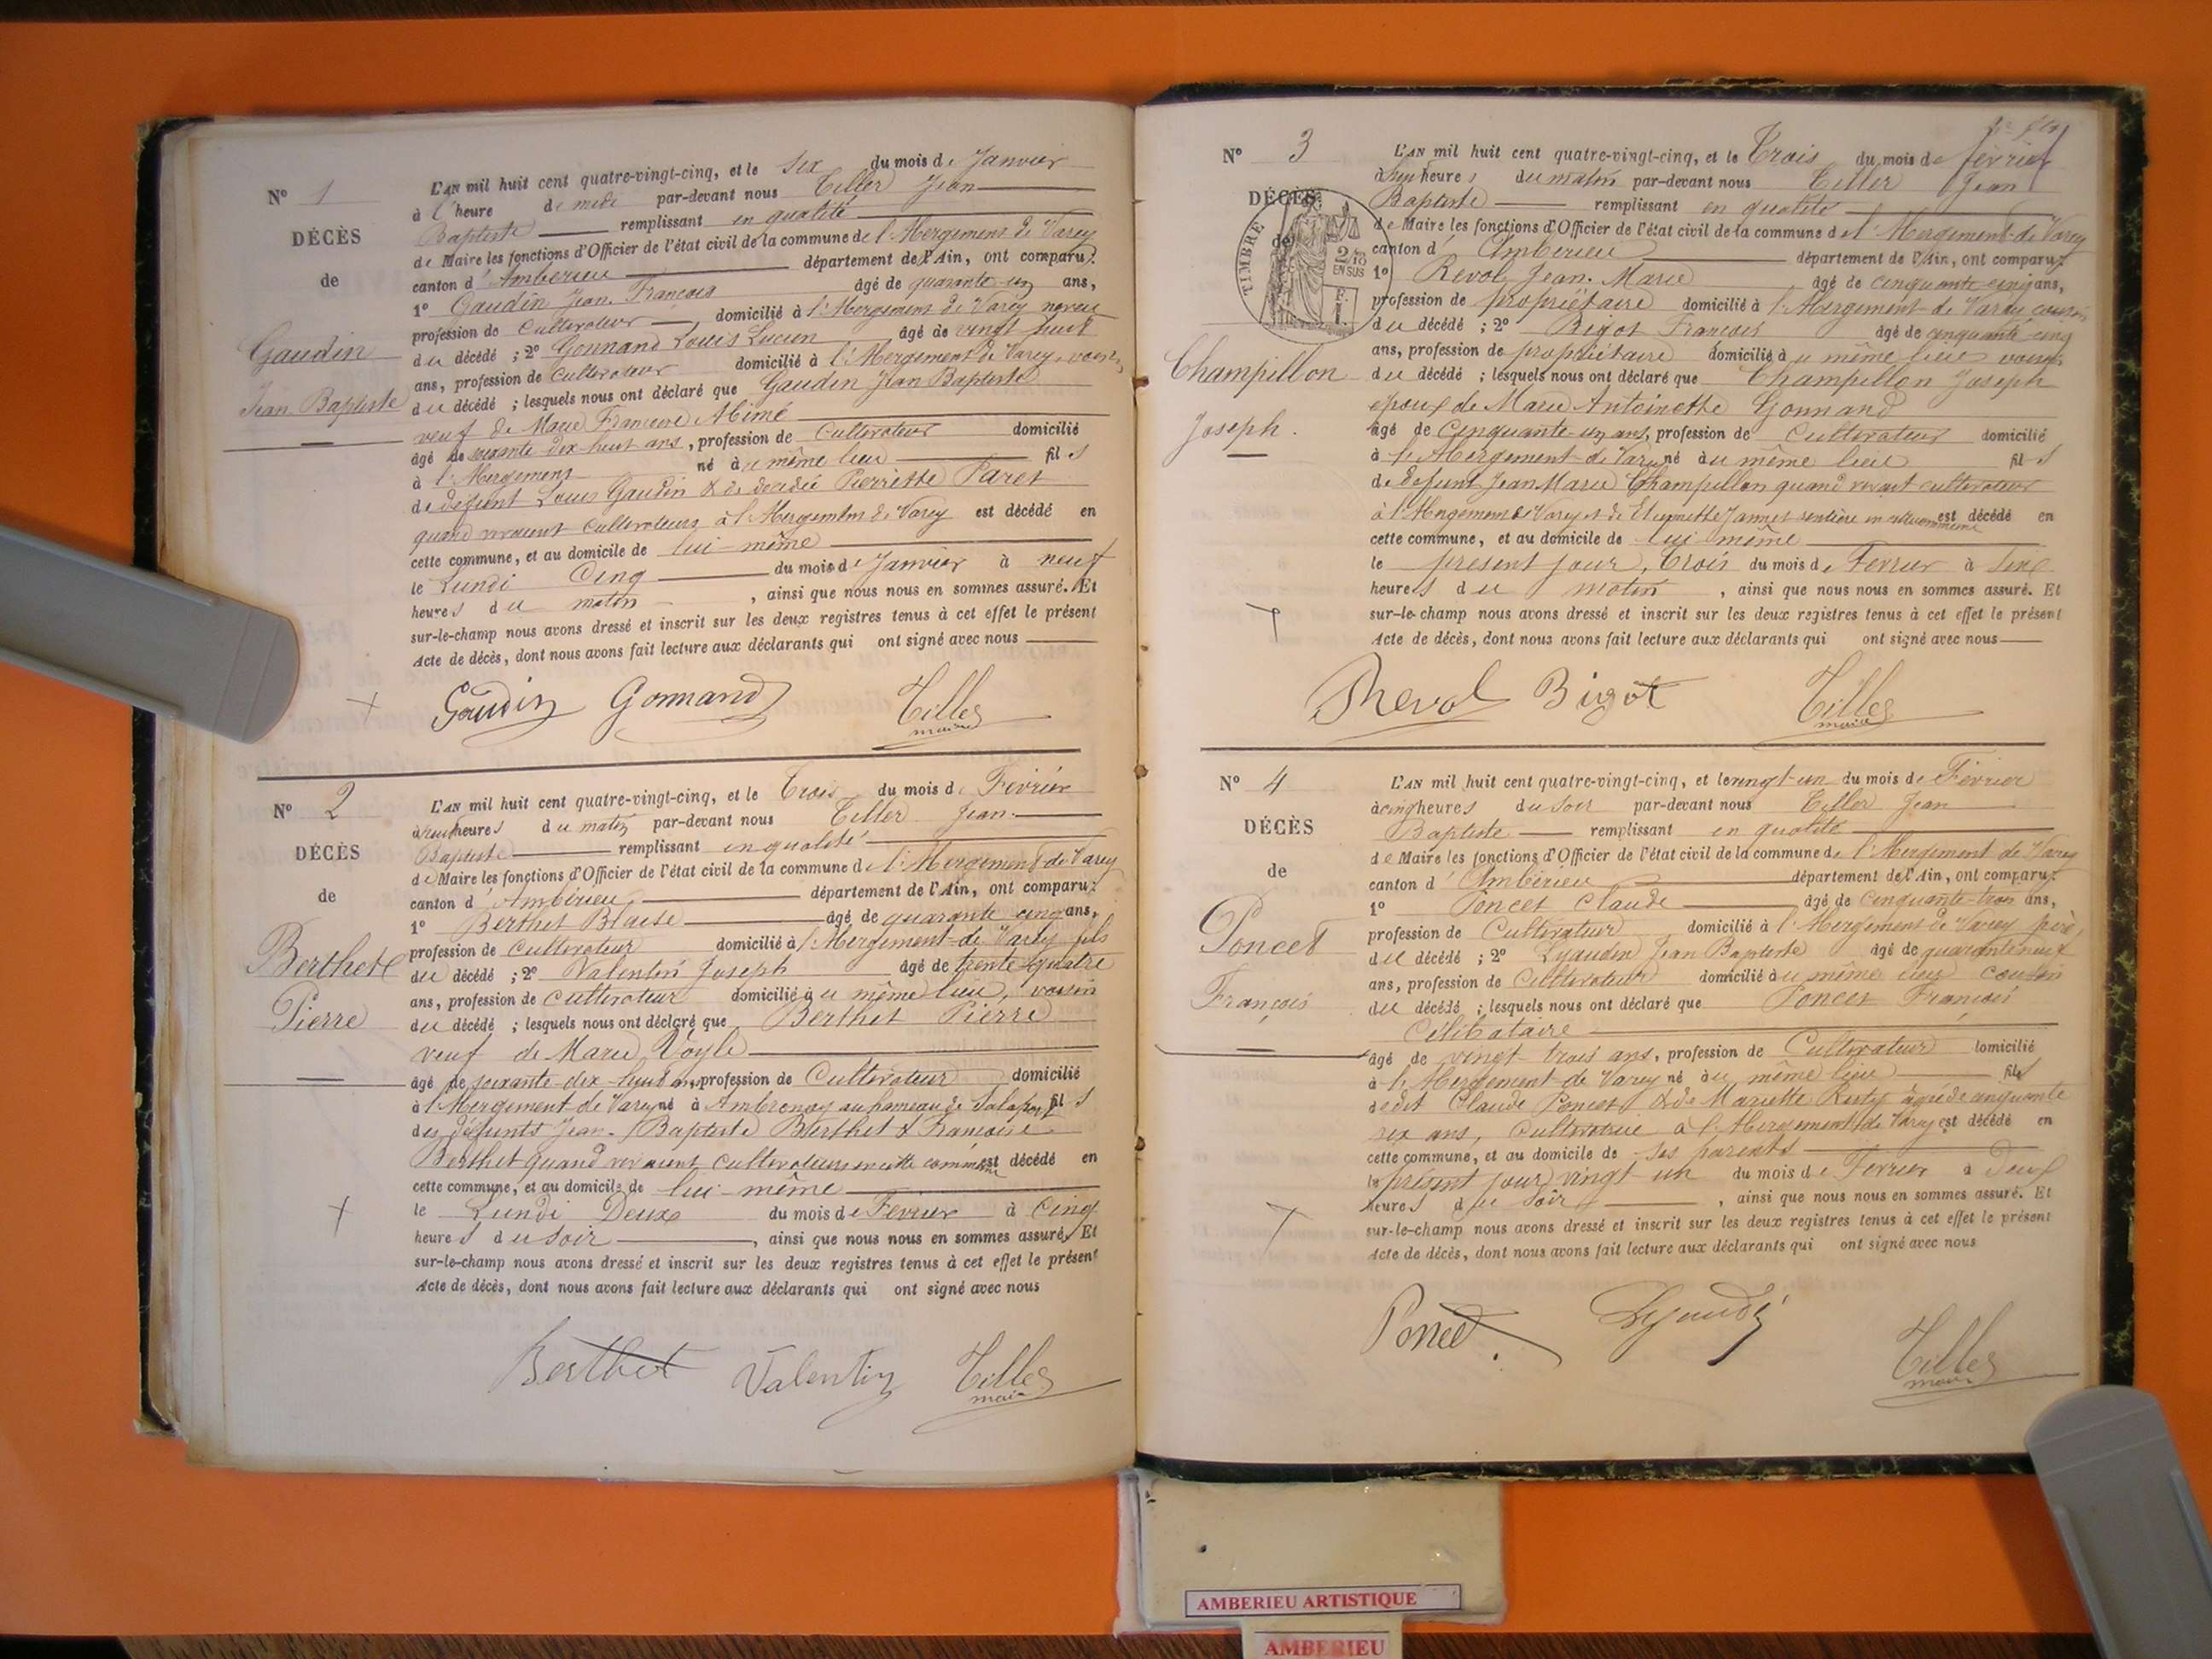 Nº 1
DÉCÈS
de
Gaudin
Jean Baptiste
L'AN mil huit cent quatre-vingt-cinq, et le Six du mois de Janvier
à l'heure de midi par-devant nous Tiller Jean
Baptiste remplissant en qualité
de Maire les fonctions d'Officier de l'état civil de la commune de l'Abergement de Varey
canton d'Ambérieu département de l'Ain, ont comparu:
1º Gaudin Jean François âgé de quarante-un ans,
profession de Cultivateur domicilié à l'Abergement de Varey neveu
du décédé ; 2º Gonnand Louis Lucien âgé de vingt huit
ans, profession de Cultivateur domicilié à l'Abergement de Varey, voisin
du décédé ; lesquels nous ont déclaré que Gaudin Jean Baptiste
veuf de Marie Françoise
âgé de soixante dix-huit ans, profession de Cultivateur domicilié
à l'Abergement né au même lieu fils
de défunt Louis Gaudin & de décédée Pierrette
quand vivaient Cultivateurs à l'Abergement de Varey est décédé en
cette commune, et au domicile de lui-même
le Lundi Cinq du mois de Janvier à neuf
heures du matin , ainsi que nous nous en sommes assuré. Et
sur-le-champ nous avons dressé et inscrit sur les deux registres tenus à cet effet le présent
Acte de décès, dont nous avons fait lecture aux déclarants qui ont signé avec nous
Gaudin Gonnand Tiller
maire
Nº 2
DÉCÈS
de
Berthet
Pierre
L'AN mil huit cent quatre-vingt-cinq, et le Trois du mois de Février
heures du matin par-devant nous Tiller Jean
Baptiste remplissant en qualité
de Maire les fonctions d'Officier de l'état civil de la commune de l'Abergement de Varey
canton d'Ambérieu département de l'Ain, ont comparu:
1º Berthet Blaise âgé de quarante cinq ans,
profession de Cultivateur domicilié à l'Abergement-de-Varey fils
du décédé ; 2º Valentin Joseph âgé de trente-quatre
ans, profession de Cultivateur domicilié au même lieu, voisin
du décédé ; lesquels nous ont déclaré que Berthet Pierre
veuf de Marie
âgé de soixante-dix-huit ans, profession de Cultivateur domicilié
à l'Abergement-de-Varey né à Ambronay au hameau de fils
des défunts Jean-Baptiste Berthet & Françoise
Berthet quand vivaient Cultivateurs en cette commune est décédé en
cette commune, et au domicile de lui-même
le Lundi Deux du mois de Février à Cinq
heures du soir , ainsi que nous nous en sommes assuré. Et
sur-le-champ nous avons dressé et inscrit sur les deux registres tenus à cet effet le présent
Acte de décès, dont nous avons fait lecture aux déclarants qui ont signé avec nous
Berthet Valentin Tiller
maire
Nº 3
DÉCÈS
de
TIMBRE
2/10
EN SUS
Champillon
Joseph.
L'AN mil huit cent quatre-vingt-cinq, et le Trois du mois de février
heures du matin par-devant nous Tiller Jean
Baptiste remplissant en qualité
de Maire les fonctions d'Officier de l'état civil de la commune de l'Abergement-de-Varey
canton d'Ambérieu département de l'Ain, ont comparu:
1º Revol Jean-Marie âgé de cinquante-cinq ans,
profession de propriétaire domicilié à l'Abergement-de Varey cousin
du décédé ; 2º Bigot François âgé de cinquante-cinq
ans, profession de propriétaire domicilié au même lieu voisin
du décédé ; lesquels nous ont déclaré que Champillon Joseph
époux de Marie Antoinette Gonnand
âgé de Cinquante-un ans, profession de Cultivateur domicilié
à l'Abergement-de Varey né au même lieu fils
de défunt Jean Marie Champillon quand vivait cultivateur
à l'Abergement de Varey et de rentière en cette commune est décédé en
cette commune, et au domicile de lui-même
le présent jour, Trois du mois de Février à Six
heures du matin , ainsi que nous nous en sommes assuré. Et
sur-le-champ nous avons dressé et inscrit sur les deux registres tenus à cet effet le présent
Acte de décès, dont nous avons fait lecture aux déclarants qui ont signé avec nous
Revol Bigot Tiller
maire
Nº 4
DÉCÈS
de
Poncet
François
L'AN mil huit cent quatre-vingt-cinq, et le vingt-un du mois de Février
à cinq heures du soir par-devant nous Tiller Jean
Baptiste remplissant en qualité
de Maire les fonctions d'Officier de l'état civil de la commune de l'Abergement de Varey
canton d'Ambérieu département de l'Ain, ont comparu:
1º Poncet Claude âgé de Cinquante-trois ans,
profession de Cultivateur domicilié à l'Abergement de Varey père
du décédé ; 2º Jean Baptiste âgé de quarante neuf
ans, profession de Cultivateur domicilié au même lieu cousin
du décédé ; lesquels nous ont déclaré que Poncet François
Célibataire
âgé de vingt trois ans, profession de Cultivateur domicilié
à l'Abergement-de Varey né au même lieu fils
dedit Claude Poncet & de Mariette âgée de cinquante
six ans, Cultivatrice à l'Abergement de Varey est décédé en
cette commune, et au domicile de ses parents
le présent jour vingt-un du mois de Février à Deux
heures du soir , ainsi que nous nous en sommes assuré. Et
sur-le-champ nous avons dressé et inscrit sur les deux registres tenus à cet effet le présent
Acte de décès, dont nous avons fait lecture aux déclarants qui ont signé avec nous
Poncet Tiller
maire
AMBERIEU ARTISTIQUE
AMBERIEU